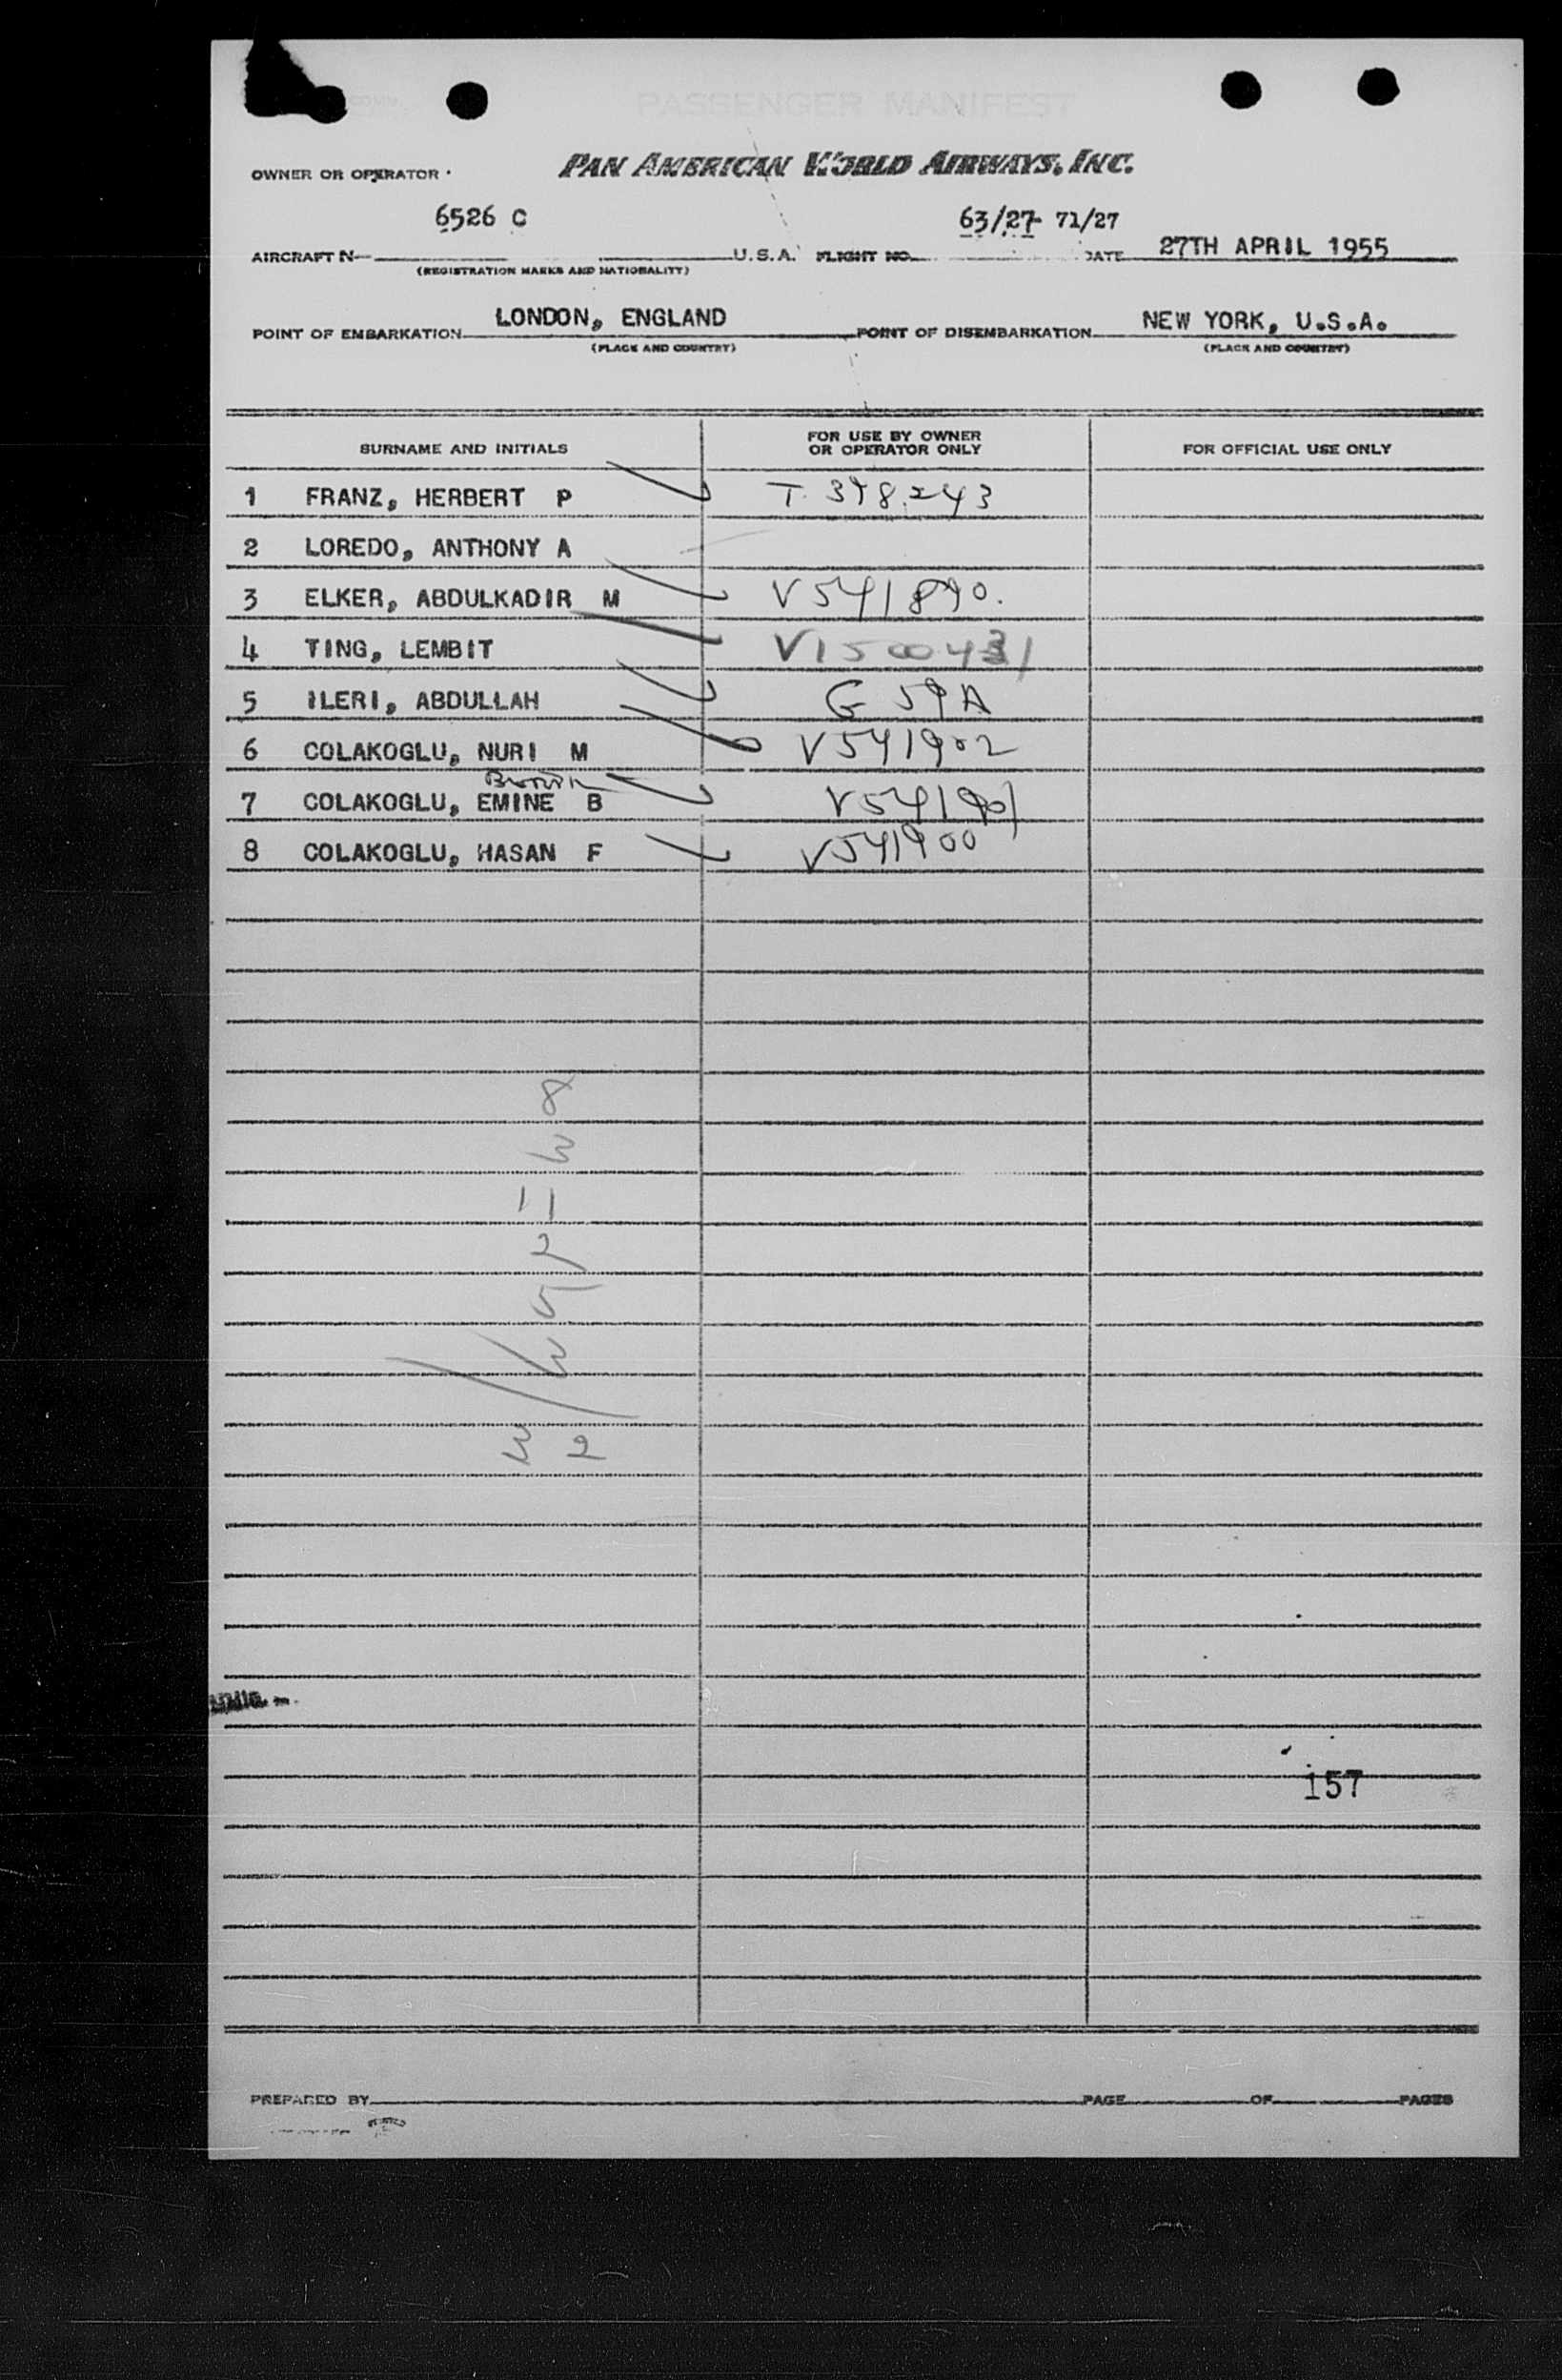 PASSENGER MANIFEST
OWNER OR OPERATOR PAN AMERICAN WORLD AIRWAYS, INC.
6526 C 63/27 71/27
AIRCRAFT N U.S.A. FLIGHT NO. DATE 27TH APRIL 1955
(REGISTRATION MARKS AND NATIONALITY)
LONDON, ENGLAND NEW YORK, U.S.A.
POINT OF EMBARKATION POINT OF DISEMBARKATION
(PLACE AND COUNTRY) (PLACE AND COUNTRY)
SURNAME AND INITIALS FOR USE BY OWNER OR OPERATOR ONLY FOR OFFICIAL USE ONLY
1 FRANZ, HERBERT P T. 398243
2 LOREDO, ANTHONY A
3 ELKER, ABDULKADIR M V541890.
4 TING, LEMBIT V1500431
5 ILERI, ABDULLAH G 59A
6 COLAKOGLU, NURI M V541902
7 COLAKOGLU, EMINE B V541901
8 COLAKOGLU, HASAN F V541900
8
3
11
2
5
3
3 2
157
PREPARED BY PAGE OF PAGES